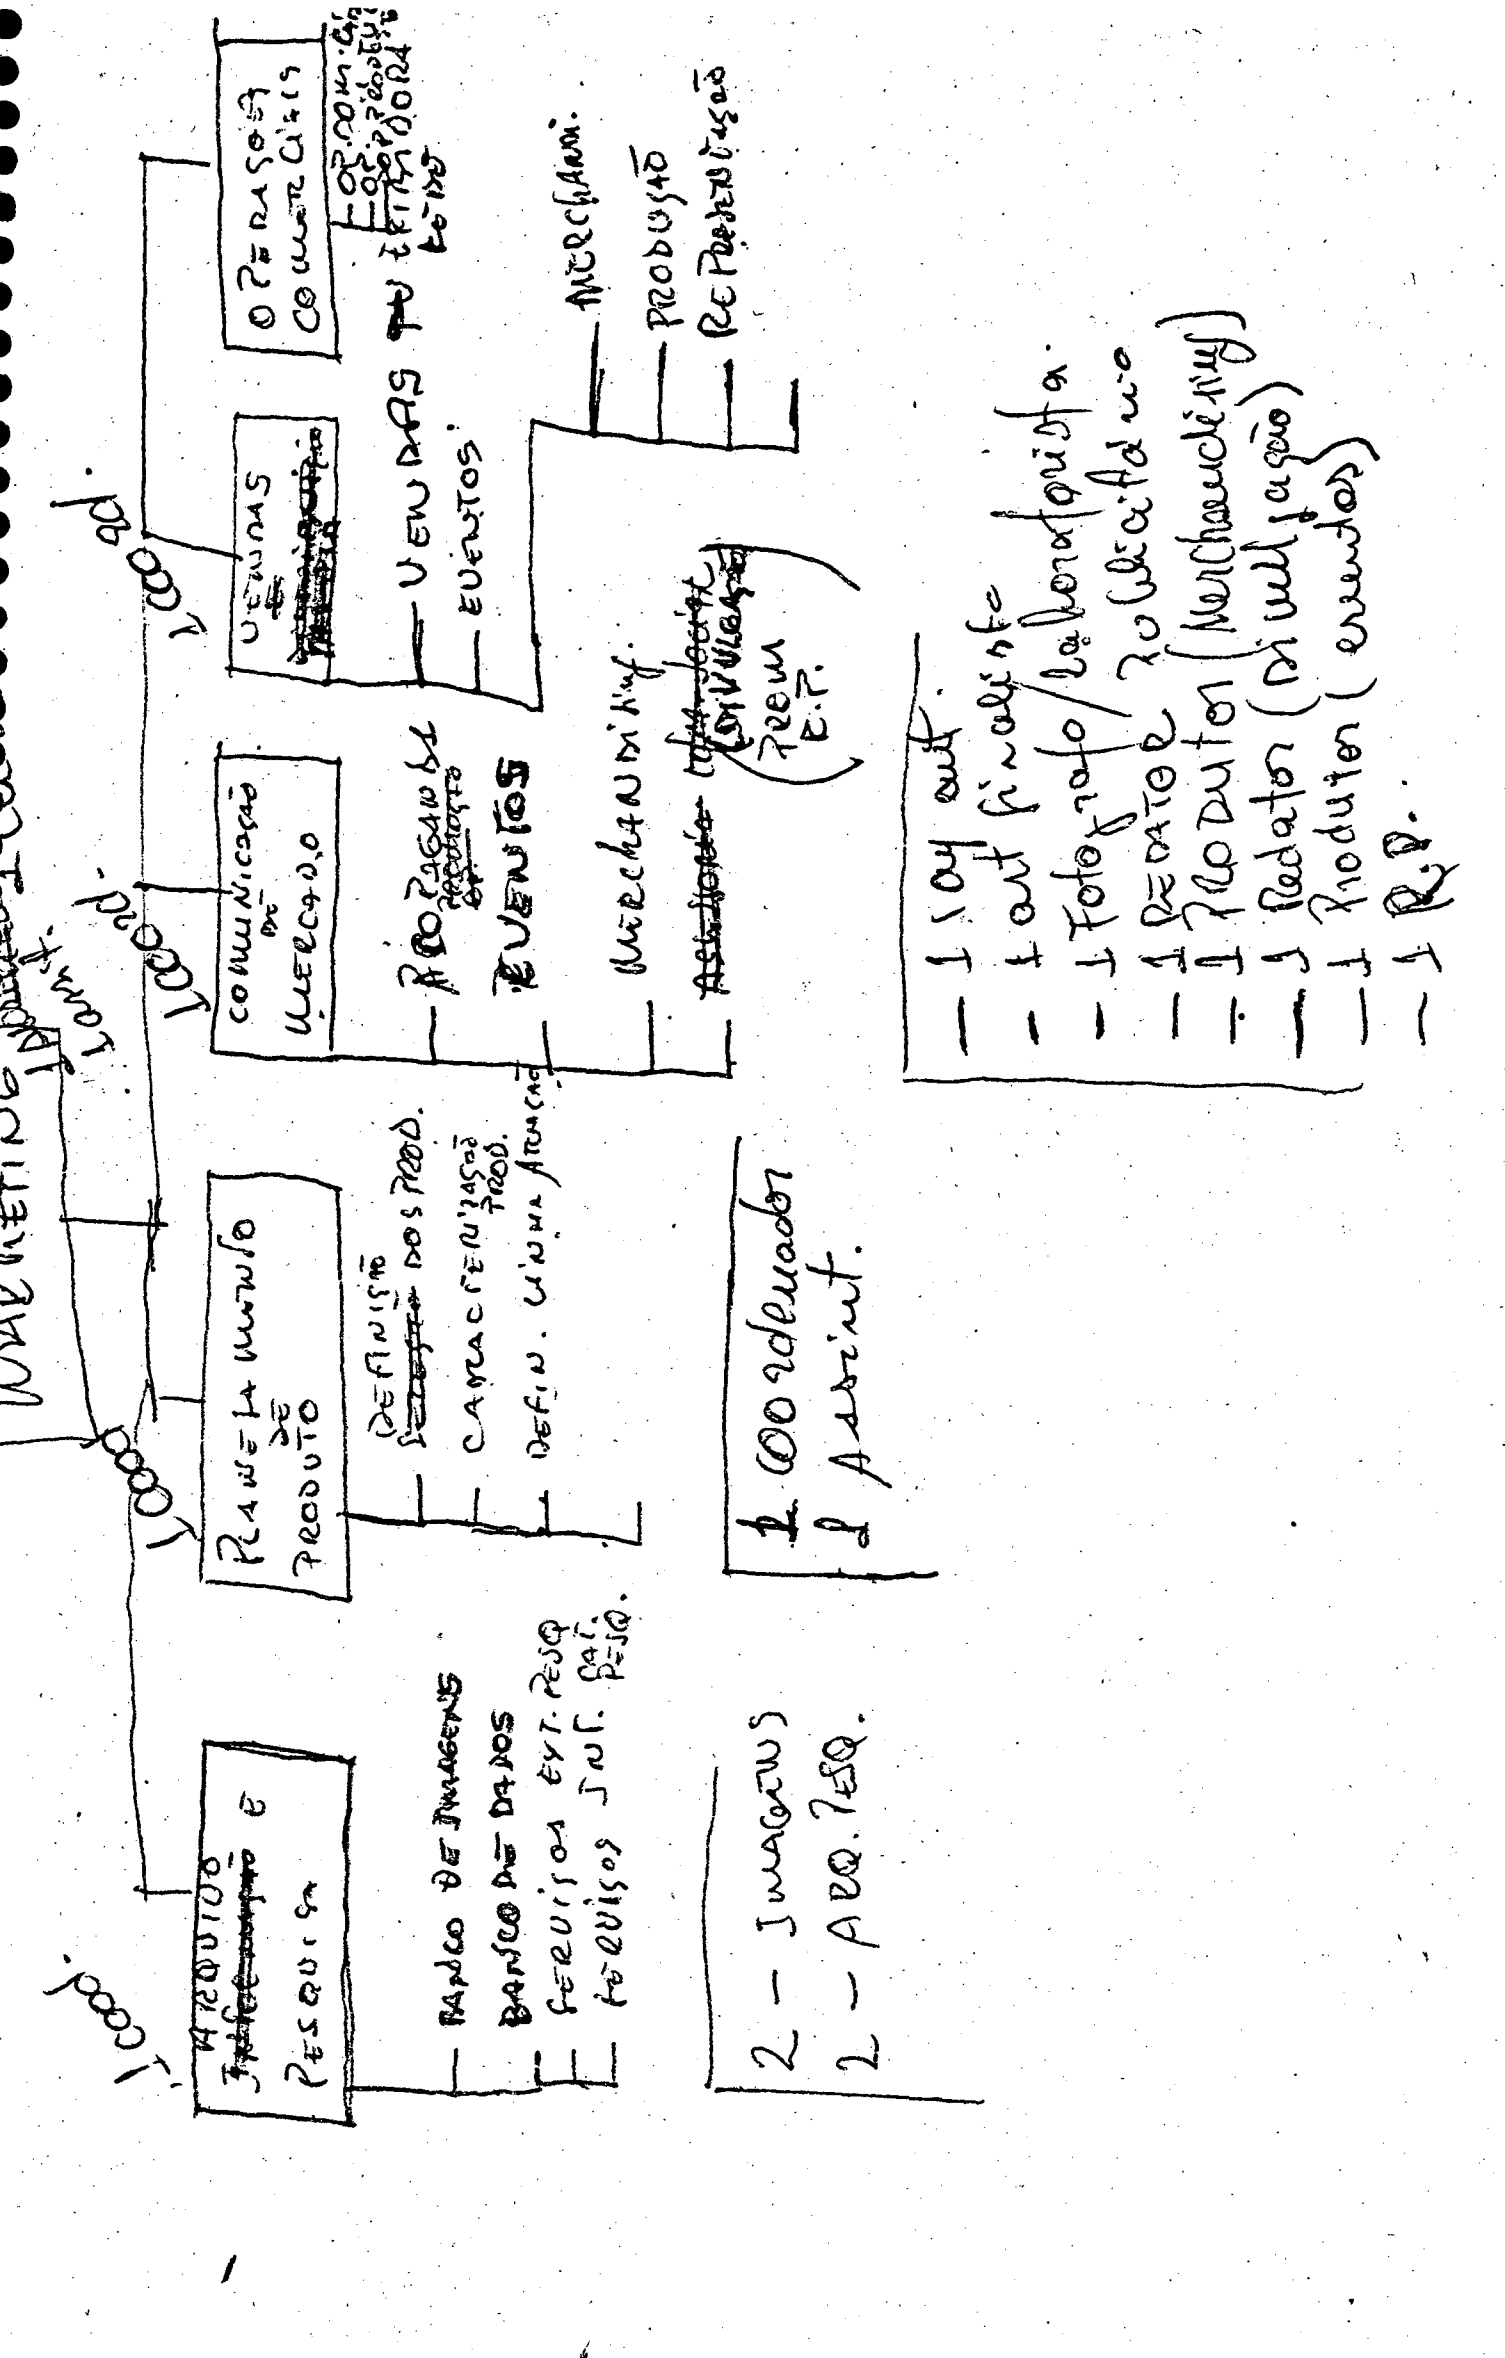 MARKETING
1 coord.
ARQUIVO
E
PESQUISA
BANCO DE IMAGENS
BANCO DE DADOS
SERVIÇOS EXT. PESQ
SERVIÇOS INT. SAT.
PESQ.
2 - IMAGENS
2 - ARQ. PESQ.
1 coord
PLANEJAMENTO
DE
PRODUTO
DEFINIÇÃO
DOS PROD.
CARACTERIZAÇÃO
PROD.
DEFIN. LINHA ATUAÇÃO
1 coordenador
1 Assist.
1 coord.
COMUNICAÇÃO
DE
MERCADO
PROPAGANDA
EVENTOS
MERCHANDISING.
(PROM
R.P.)
- 1 lay out.
- 1 art finalista
- 1 Fotografo/laboratorista.
- 1 REDATOR Publicitário
- 1 PRODUTOR (Merchandising)
- 1 Redator (Divulgação)
- 1 Produtor (eventos)
- 1 R.P.
1 coord.
VENDAS
- VENDAS
- EVENTOS.
MERCHANDI.
PRODUÇÃO
REPRESENTAÇÃO
OPERAÇÕES
COMERCIAIS